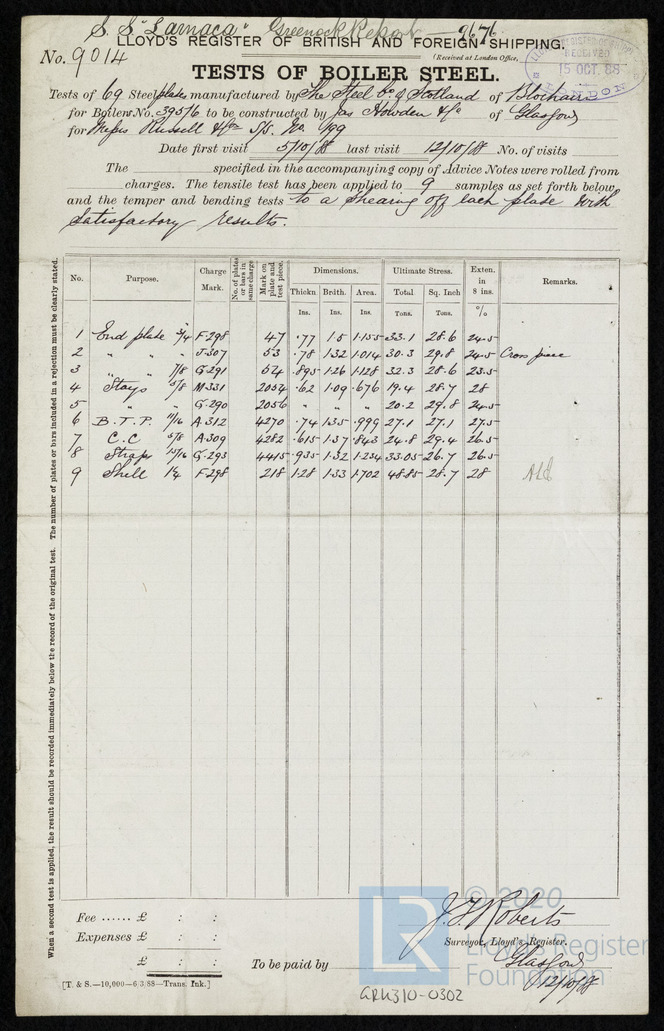 S. S. "Larnaca" Greenock Report 9676
LLOYD'S REGISTER OF BRITISH AND FOREIGN SHIPPING.
No. 9014
(Received at London Office,
RECEIVED
15 OCT. 88
LONDON
TESTS OF BOILER STEEL.
Tests of 69 Steel plates manufactured by The Steel Co. of Scotland of Blochairn
for Boilers No. 395/6 to be constructed by Jas Howden & Co of Glasgow
for Messrs Russell & Co S.S. No. 199
Date first visit 5/10/88 last visit 12/10/88 No. of visits
The specified in the accompanying copy of Advice Notes were rolled from
charges. The tensile test has been applied to 9 samples as set forth below
and the temper and bending tests to a shearing off each plate with
satisfactory results.
No. Purpose. Charge Mark. No. of plates or bars in same charge Mark on plate and test piece. Dimensions. Ultimate Stress. Exten. in 8 ins. Remarks.
Thickn Brdth. Area. Total Sq. Inch %
Ins. Ins. Ins. Tons. Tons.
1 End plate 3/4 F.298 47 .77 1.5 1.155 33.1 28.6 24.5
2 " " " J.307 53 .78 1.32 1.014 30.3 29.8 24.5 Cross piece
3 " " 7/8 G.291 54 .895 1.26 1.128 32.3 28.6 23.5
4 Stays 5/8 M.331 2054 .62 1.09 .676 19.4 28.7 28
5 " " G.290 2056 " " " 20.2 29.8 24.5
6 B.T.P. 11/16 A.312 4270 .74 1.35 .999 27.1 27.1 27.5
7 C.C 5/8 A.309 4282 .615 1.37 .843 24.8 29.4 26.5
8 Straps 15/16 G.293 4415 .935 1.32 1.234 33.05 26.7 26.5
9 Shell 1 1/4 F.298 218 1.28 1.33 1.702 48.85 28.7 28
When a second test is applied, the result should be recorded immediately below the record of the original test. The number of plates or bars included in a rejection must be clearly stated.
Fee ...... £ : :
Expenses £ : :
£ : :
To be paid by
J. F. Roberts
Surveyor, Lloyd's Register.
Glasgow
12/10/88
[T. & S.—10,000—6/3/88—Trans. Ink.]
GRK310-0302
LR
© 2020
Lloyd's Register
Foundation